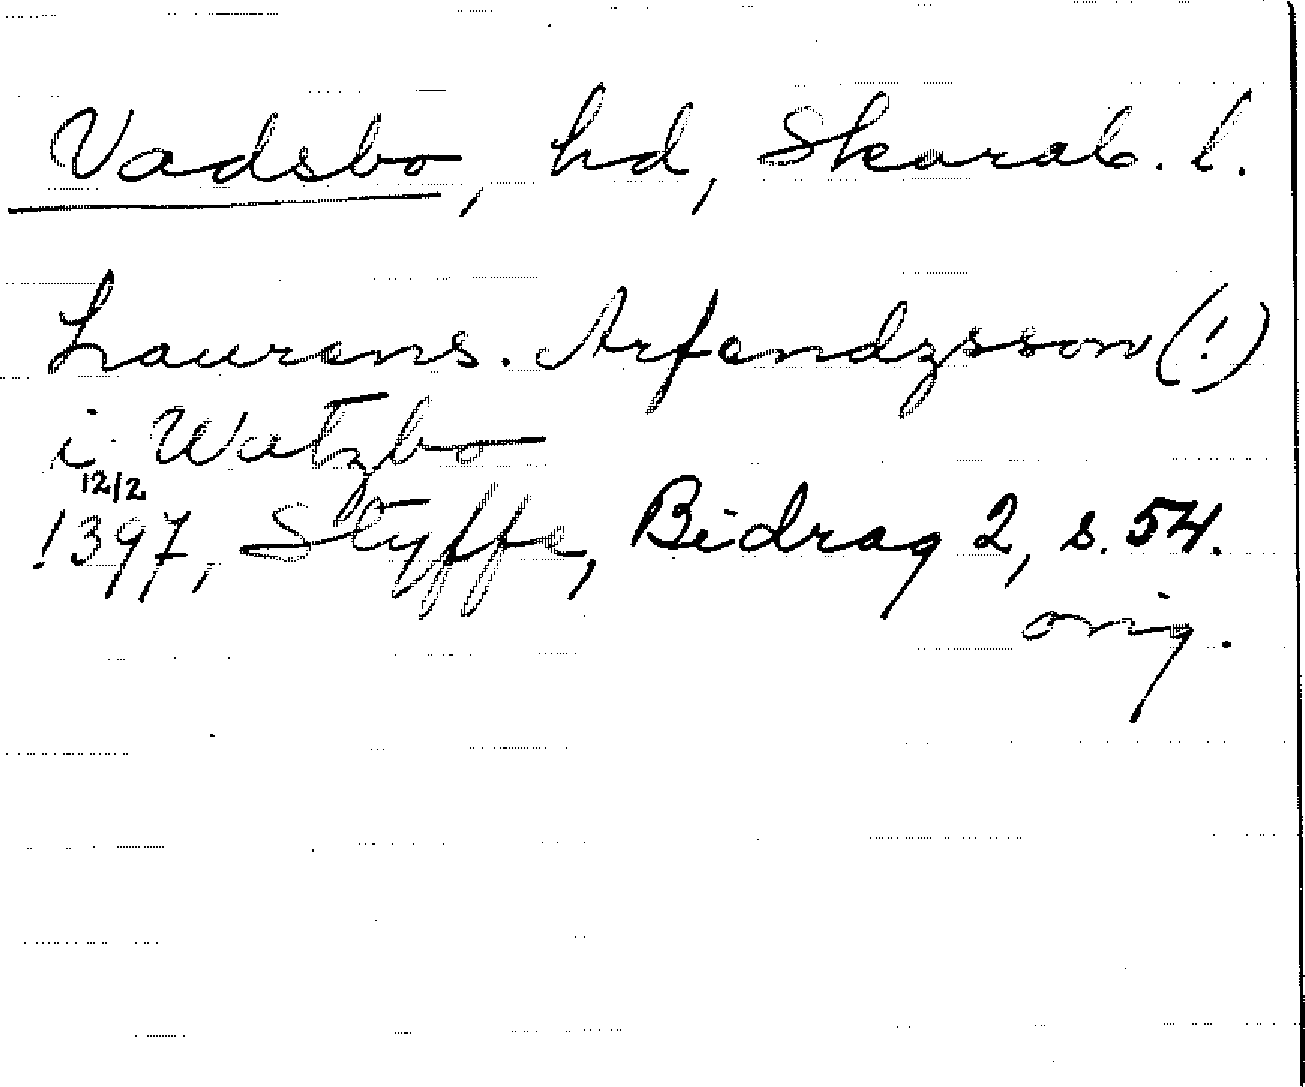 Vadsbo, hd, Skarab. l.
Laurens. Arfendzsson (!)
i Watzbo
12/2
1397, Styffe, Bidrag 2, s. 54.
orig.